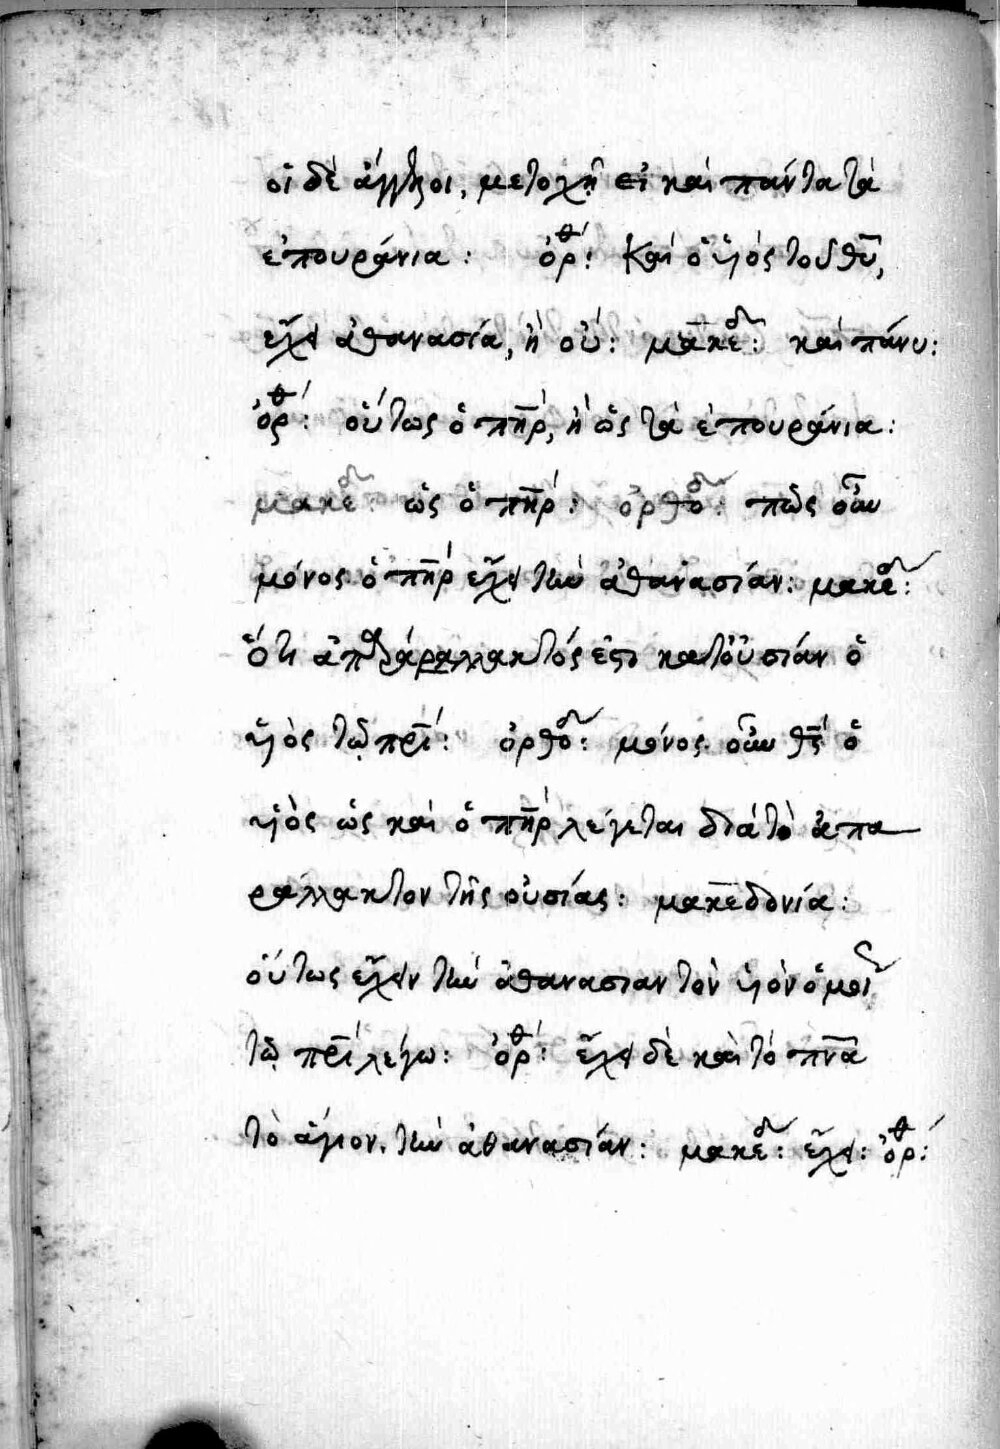 οἱ δὲ ἄγγελοι, μετοχῇ εἰ καὶ πάντα τὰ
ἐπουράνια : ὀρθ : Καὶ ὁ ὑιὸς τοῦ θυ,
ἔχει ἀθανασία, ἢ οὔ : μακεδ : καὶ πάνυ :
ὀρθ : οὕτως ὁ πηρ, ἢ ὡς τὰ ἐπουράνια :
μακεδ : ὡς ὁ πηρ : ὀρθοδ : πῶς οὖν
μόνος ὁ πηρ ἔχει τὴν ἀθανασίαν : μακεδ :
ὅτι ἀπαράλλακτός ἐστι κατουσίαν ὁ
ὑιὸς τῷ πρι : ὀρθοδ : μόνος οὖν θς ὁ
ὑιὸς ὡς καὶ ὁ πηρ λέγεται διὰ τὸ ἀπα
ράλλακτον τῆς οὐσίας : μακεδονία :
οὕτως ἔχειν τὴν ἀθανασίαν τὸν ὑιὸν ὁμοί
τῷ πρι λέγω : ὀρθ : ἔχει δὲ καὶ τὸ πνα
τὸ ἅγιον, τὴν ἀθανασίαν : μακεδ : ἔχει : ὀρθ :